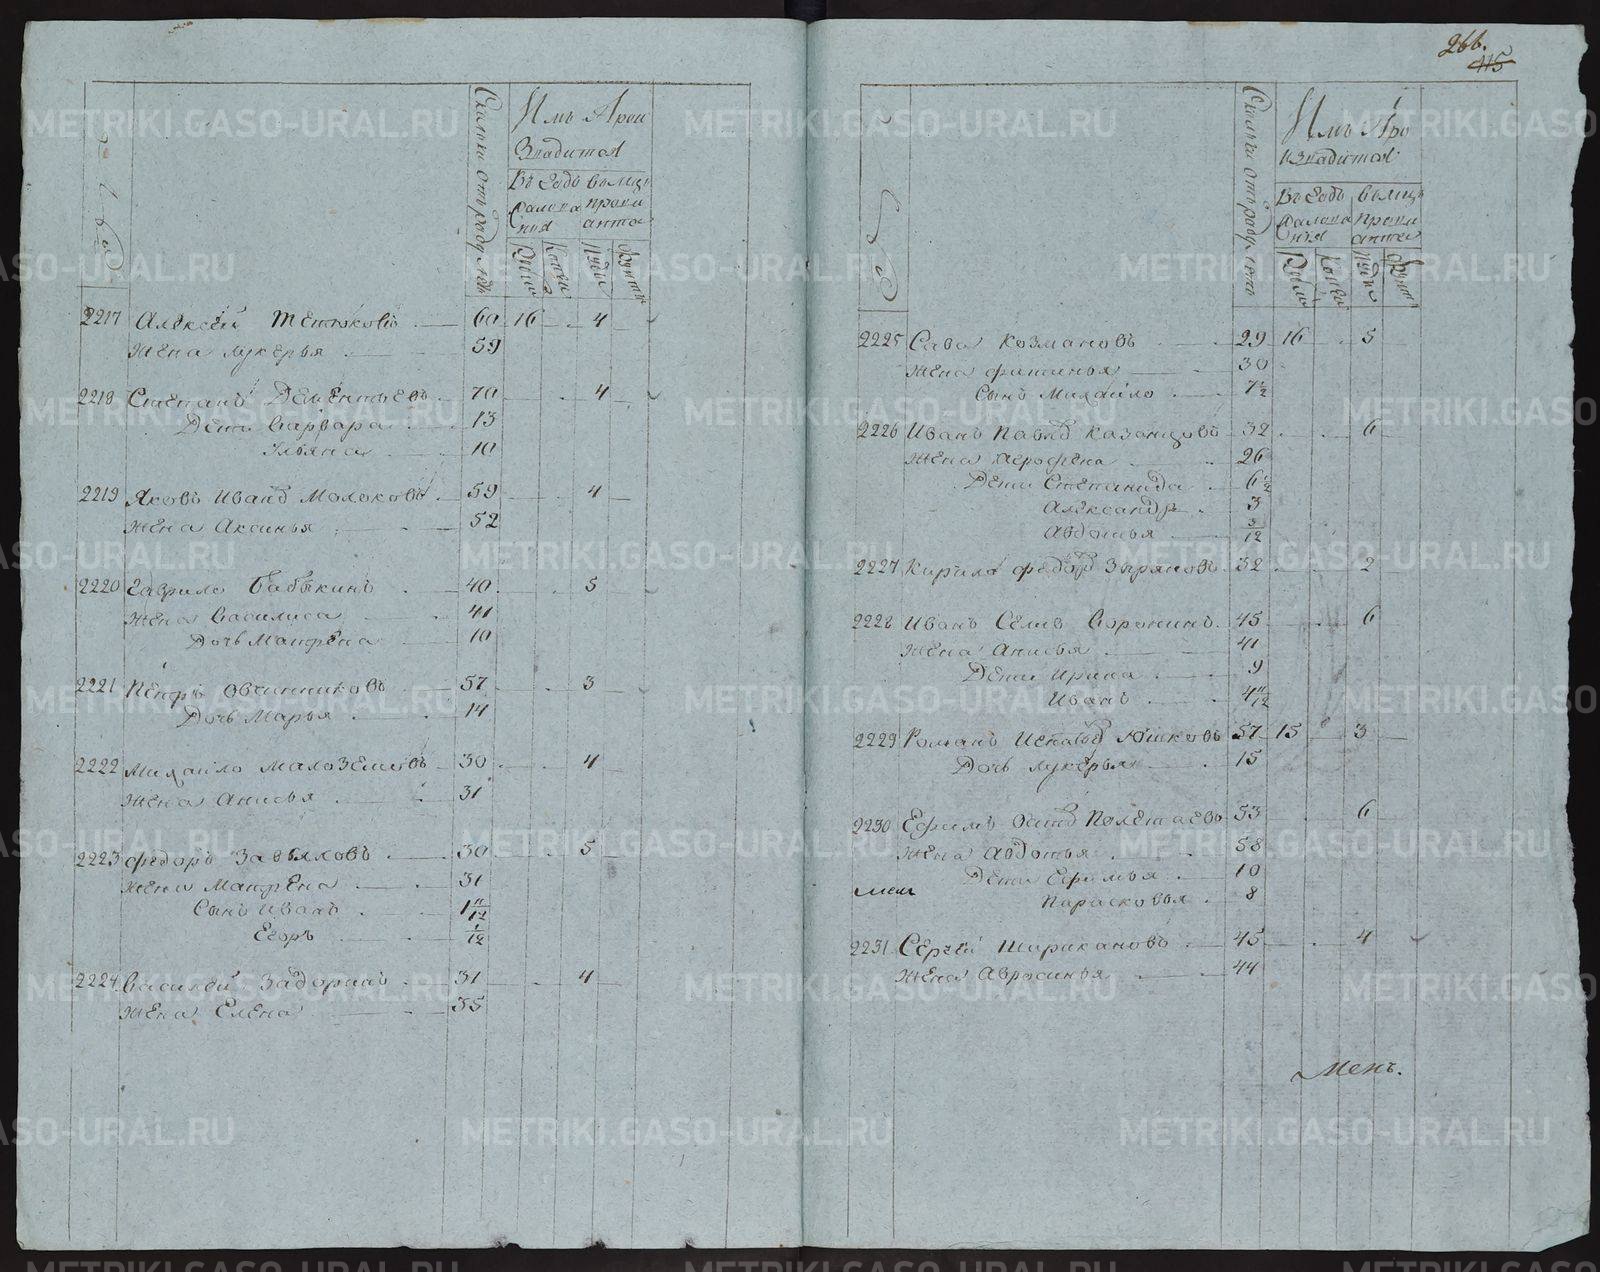 266.
115
Сколько отъ роду летъ
Имъ Прои
Зводится
Въ Годъ
Жалова
Ния
вомесц
прови
анта
Рубли
Копеи
Пуды
Фунты
2217 Алексей Тетюковъ 60 16 4
Жена Лукерья 59
2218 Степанъ Дементьевъ 70 4
Дети Варвара 13
Ульяна 10
2219 Яковъ Иванов Молоковъ 59 4
Жена Аксинья 52
2220 Гаврило Бабкинъ 40 5
Жена Василиса 41
Дочь Матрена 10
2221 Петръ Овчинниковъ 57 3
Дочь Марья 14
2222 Михайло Малоземовъ 30 4
Жена Анисья 31
2223 Федоръ Завьяловъ 30 5
Жена Матрена 31
Сынъ Иванъ 1 11/12
Егоръ 1/12
2224 Василей Задоринъ 31 4
Жена Елена 35
Сколько отъ роду летъ
Имъ Про
Изводится
Въ Годъ
Жалова
Ния
вомесц
прови
анта
Рубли
Копеи
Пуды
Фунт
2225 Сава Козмановъ 29 16 5
Жена Фитинья 30
Сынъ Михайло 7 1/2
2226 Иванъ Павлов Казанцовъ 32 6
Жена Агрофена 26
Дети Степанида 6 1/2
Александр 3
Авдотья 3/12
2227 Кирило Федор Зыряновъ 32 2
2228 Иванъ Селив Воронинъ 45 6
Жена Анисья 41
Дети Ирина 9
Иванъ 4 11/12
2229 Романъ Игнатьев Юшковъ 57 15 3
Дочь Лукерья 15
2230 Ефимъ Полетаевъ 53 6
Жена Авдотья 58
Дети Ефимья 10
Парасковья 8
2231 Сергей Шириκановъ 45 4
Жена Авросинья 44
Менъ.
METRIKI.GASO-URAL.RU